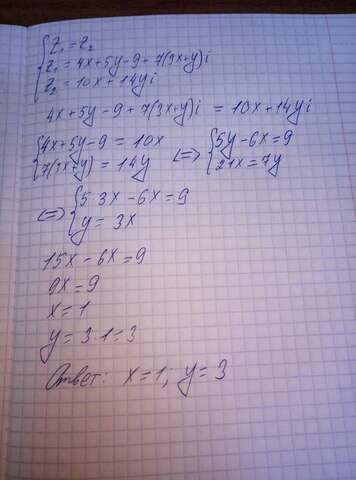 { z₁ = z₂
z₁ = 4x+5y-9+7(3x+y)i
z₂ = 10x+14yi
4x+5y-9+7(3x+y)i = 10x+14yi
{ 4x+5y-9 = 10x <=> { 5y-6x=9
7(3x+y) = 14y 21x=7y
<=> { 5·3x-6x=9
y = 3x
15x-6x=9
9x=9
x=1
y=3·1=3
Ответ: x=1; y=3